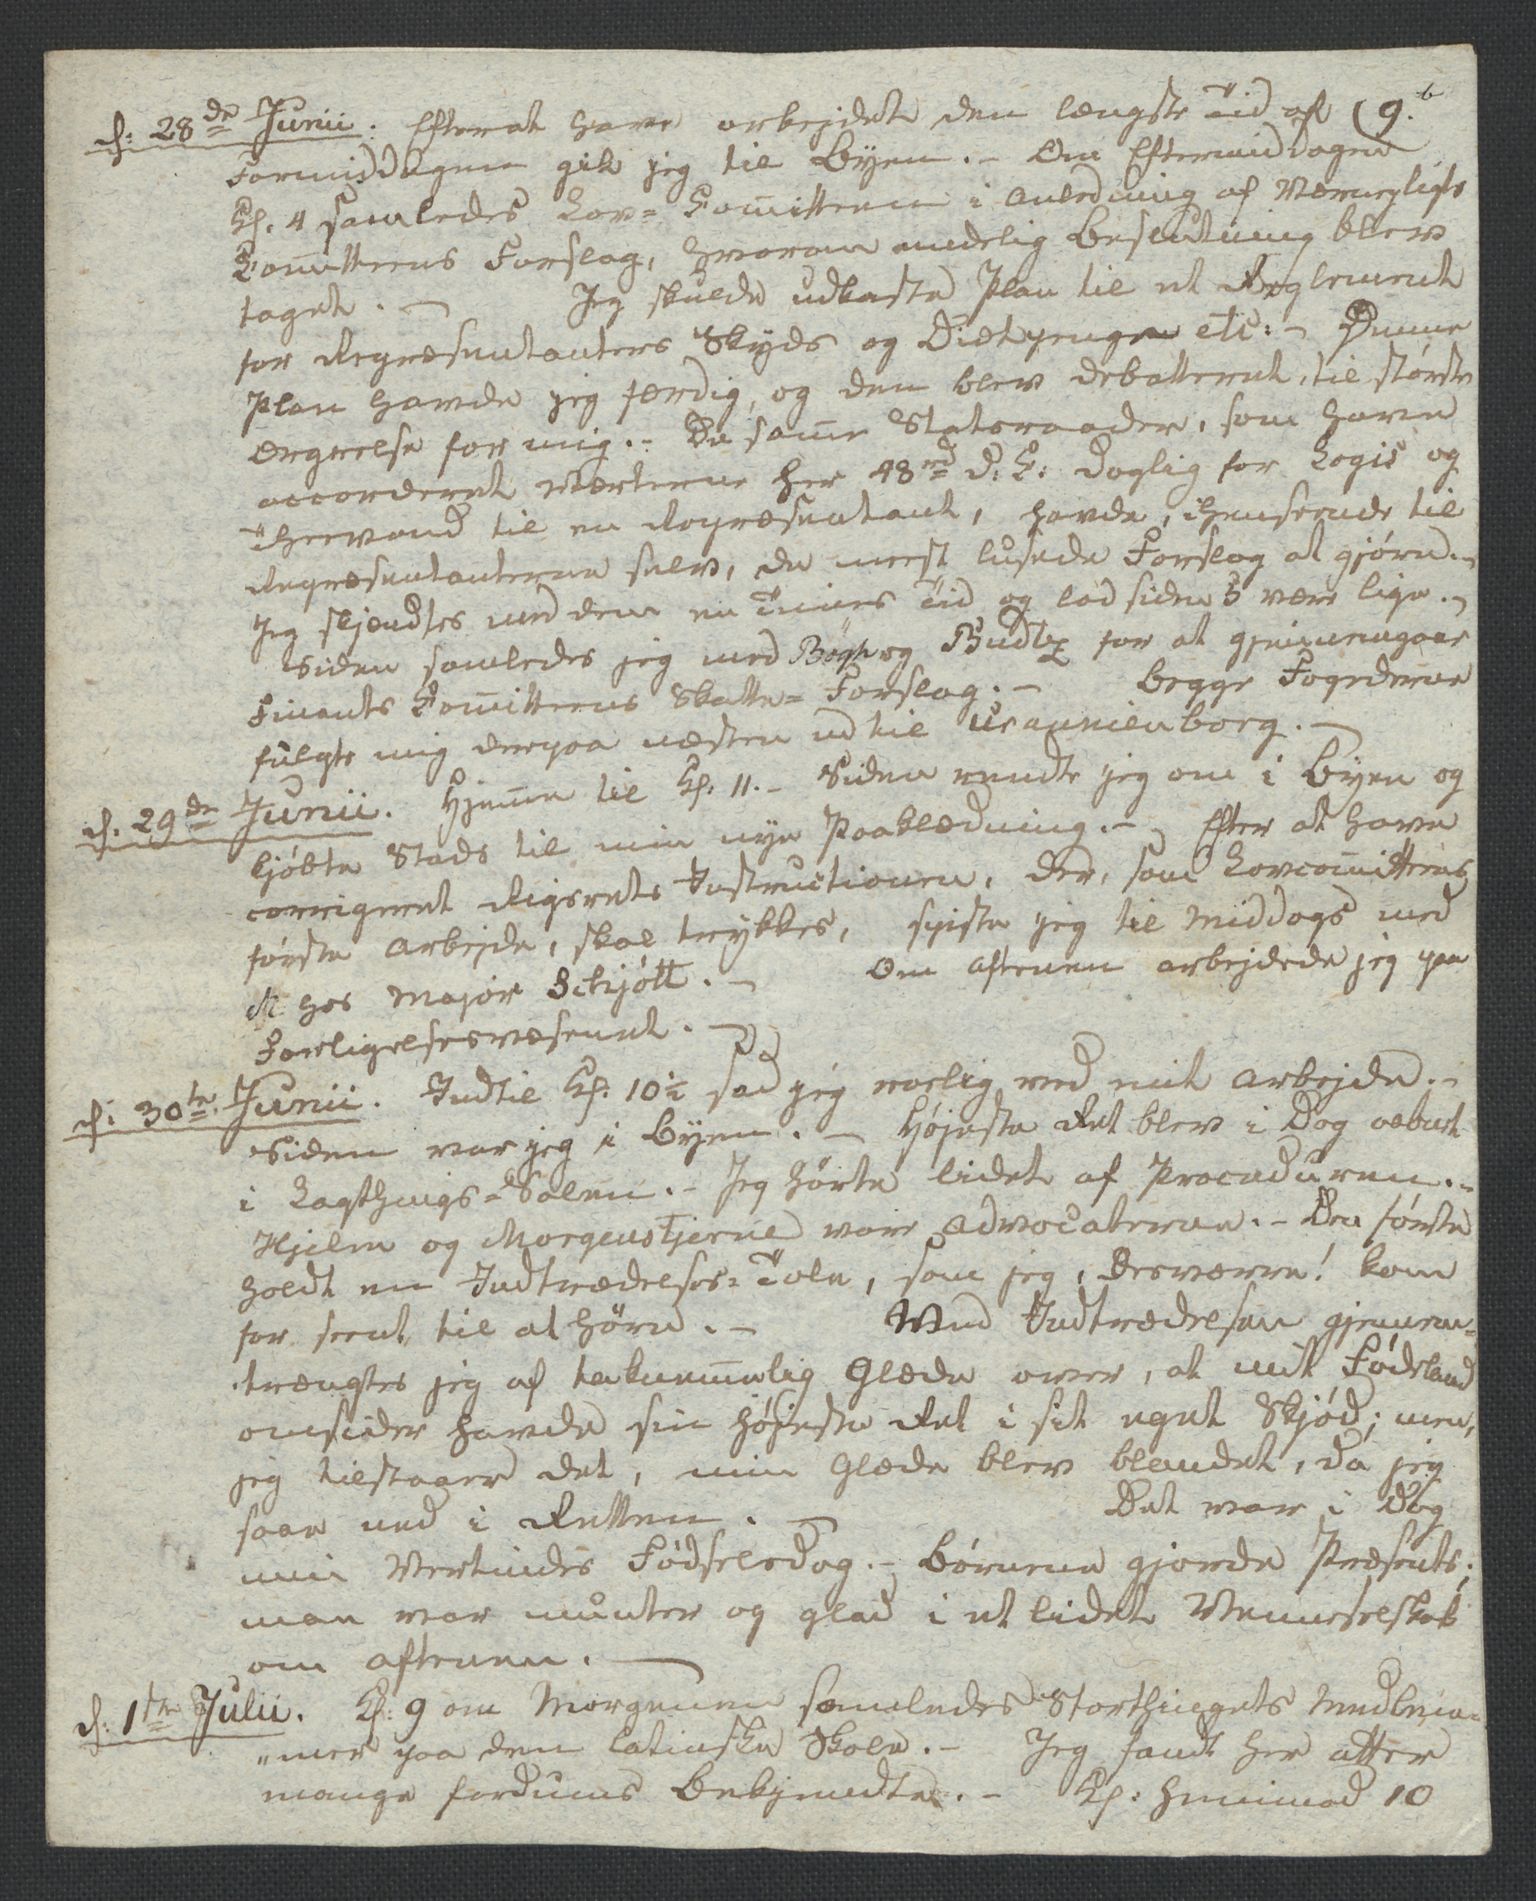 (9.b
d: 28de Junii. Efterat have arbejdet den længste Tid af
Formiddagen gik jeg til Byen. – Om Eftermiddagen
Kl. 4 samledes Lov-Committeen i Anledning af Værnepligts
Committeens Forslag, hvorom endelig Beslutning blev
taget. – Jeg skulde udkaste Plan til et Reglement
for Repræsentanters Skyds og Diætpenge etc: – Denne
Plan havde jeg færdig, og den blev debatteret, til største
Ærgrelse for mig. – De samme Statsraader, som have
accorderet Værterne her 48 rd D: C: daglig for Logis og
Theevand til en Repræsentant, havde, i Henseende til
Repræsentanterne selv, de meest lusede Forslag at gjøre. –
Jeg skjendtes med dem en Times Tid og lod siden 5 være lige. –
Siden samledes jeg med Bøgh og Budtz for at gjennemgaae
Finants Committeens Skatte-Forslag. – Begge Fogderne
fulgte mig derpaa næsten ud til Uranienborg. –
d. 29de Junii. Hjemme til Kl. 11. – Siden rendte jeg om i Byen og
kjøbte Stads til min nye Paaklædning. – Efter at have
corrigeret Rigsrets Instructionen, der, som Lovcommitteens
første Arbejde, skal trykkes, spiste jeg til Middags med
M. hos Major Schjøtt. – Om Aftenen arbejdede jeg paa
Forligelsesvæsenet. –
d: 30te Junii. Indtil Kl. 10½ sad jeg roelig ved mit Arbejde. –
Siden var jeg i Byen. – Højeste Ret blev i Dag aabnet
i Lagthings-Salen. – Jeg hørte lidet af Proceduren. –
Hjelm og Morgenstjerne vare Advocaterne. – Den første
holdt en Indtrædelses-Tale, som jeg, desværre! kom
for seent til at høre. – Ved Indtrædelsen gjennem-
trængtes jeg af taknemmelig Glæde over, at mit Fødeland
omsider havde sin højeste Ret i sit eget Skjød; men,
jeg tilstaaer det, min Glæde blev blandet, da jeg
saae ned i Retten. – Det var i Dag
min Vertindes Fødselsdag. – Børnene gjorde Præsents;
man var munter og glad i et lidet Venneselskab
om Aftenen. –
d: 1te Julii. Kl: 9 om Morgenen samledes Storthingets Medlem-
„mer paa den latinske Skole. – Jeg fandt her atter
mange fordums Bekjendte. – Kl: henimod 10